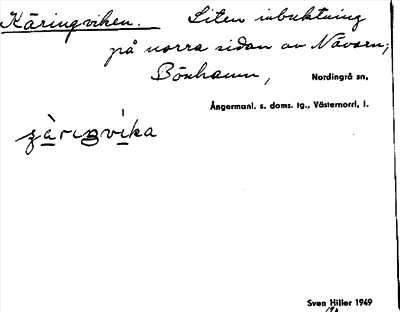 Käringviken. Liten inbuktning
på norra sidan av Nävarn,
Bönhamn, Nordingrå sn,
Ångermanl. s. doms. tg., Västernorrl. l.
Sven Hiller 1949